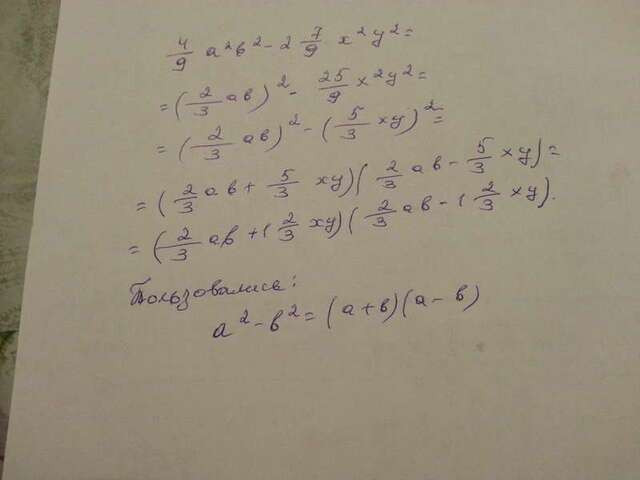 4/9 a²b² - 2 7/9 x²y² =
= (2/3 ab)² - 25/9 x²y² =
= (2/3 ab)² - (5/3 xy)² =
= (2/3 ab + 5/3 xy)(2/3 ab - 5/3 xy) =
= (2/3 ab + 1 2/3 xy)(2/3 ab - 1 2/3 xy).
Пользовались:
a² - b² = (a + b)(a - b)